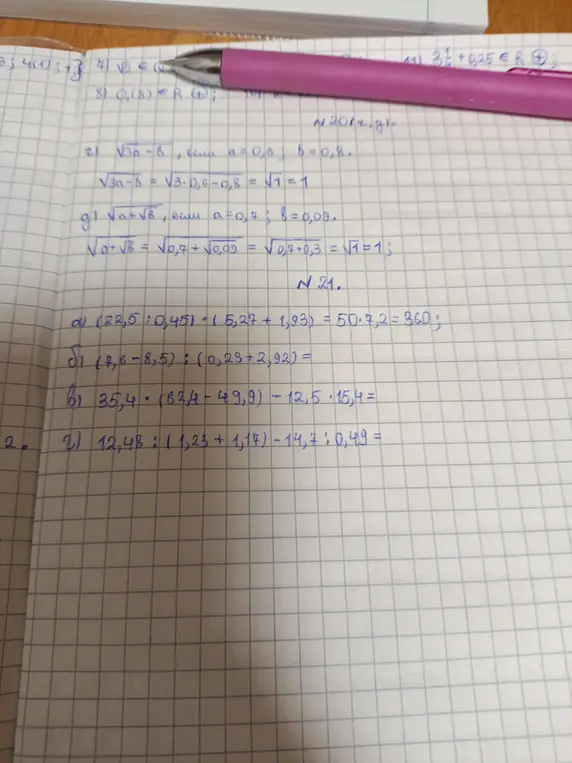 3; 4(1); +;}
7) √3 ∈
11) 3 1/2 + 0,25 ∈ R ⊕;
8) 0,(8) ∈ R ⊕;
N 20 (г, д).
г) √3a-b, если a=0,6; b=0,8.
√3a-b = √3·0,6-0,8 = √1 = 1
д) √a+√b, если a=0,7; b=0,09.
√a+√b = √0,7+√0,09 = √0,7+0,3 = √1=1;
N 21.
а) (22,5:0,45)·(5,27+1,93) = 50·7,2=360;
б) (7,6-8,5) : (0,23+2,92)=
в) 35,4·(62,4-49,9)-12,5·15,4=
2.
г) 12,48:(1,23+1,17)-14,7:0,49=